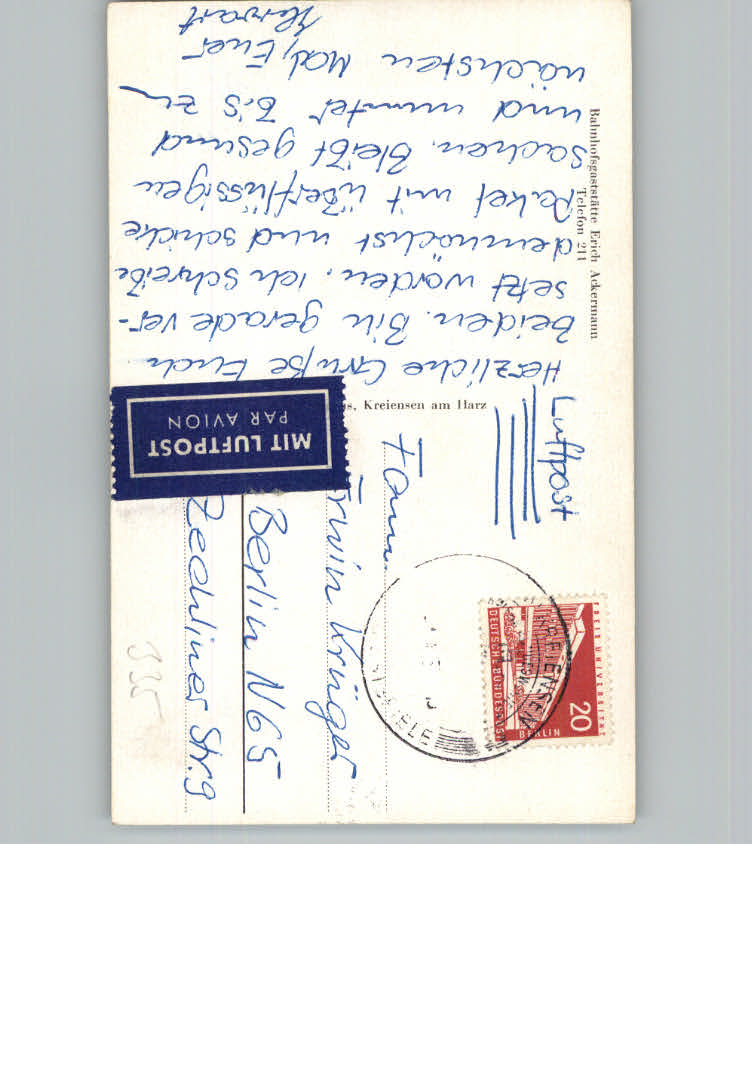 Bahnhofsgaststätte Erich Ackermann
Telefon 211
Herzliche Grüße Euch
Beiden. Bin gerade ver-
setzt worden. Ich schreibe
demnächst und schicke
Paket mit überflüssigen
Sachen. Bleibt gesund
und munter bis zu
nächsten Mal, Euer
, Kreiensen am Harz
Luftpost
MIT LUFTPOST
PAR AVION
Fam.
Erwin Krüger
Berlin N65
Zechliner Str. 9
FREIE UNIVERSITÄT
BERLIN
20
DEUTSCHE BUNDESPOST
KREIENSEN